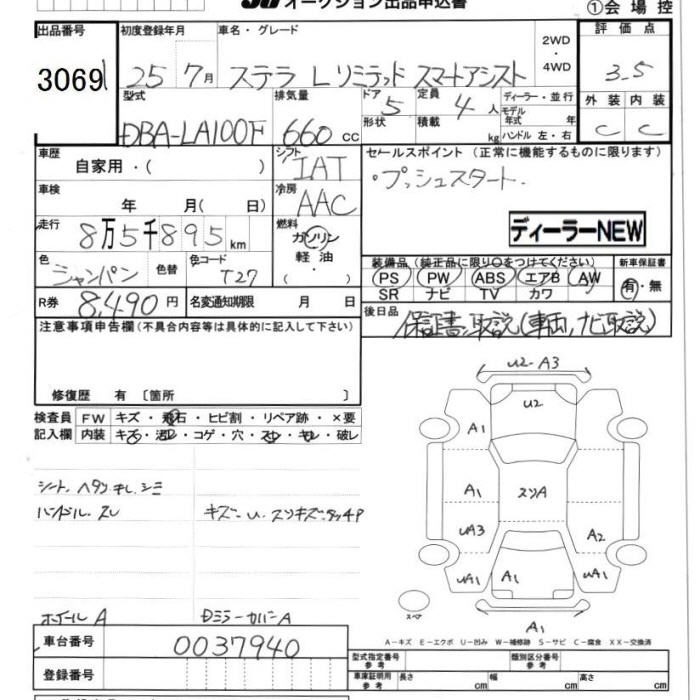 オークション出品申込書
①会場控
出品番号 初度登録年月 車名・グレード 2WD 評価点
3069 25 7月 ステラ Lリミテッド スマートアシスト 4WD 3.5
型式 排気量 ドア 5 定員 4人 ディーラー・並行 外装 内装
DBA-LA100F 660cc 形状 積載 kg モデル年式 年 ハンドル 左・右 C C
車歴 自家用・( ) シフト IAT セールスポイント (正常に機能するものに限ります)
車検 年 月( 日) 冷房 AAC ・プッシュスタート.
走行 8万5千895km 燃料 ガソリン ディーラーNEW
軽油・( )
色 シャンパン 色替 色コード T27 装備品 (純正品に限り○をつけてください) 新車保証書
PS PW ABS エアB AW 有・無
SR ナビ TV カワ
R券 8,490円 名変通知期限 月 日 後日品 保証書.取説(車両,ナビ取説)
注意事項申告欄(不具合内容等は具体的に記入して下さい)
修復歴 有 〔箇所 〕
検査員 FW キズ・飛石・ヒビ割・リペア跡・×要
記入欄 内装 キズ・汚レ・コゲ・穴・スレ・キレ・破レ
シート.ヘタリ キレ.シミ
ハンドル.スレ キズ.U.スリキズ.タッチP
ホイールA DミラーカバーA
U2-A3
U2
A1
A1 スリA
UA3 A2
UA1 A1 UA1
スペア
A1
A-キズ E-エクボ U-凹み W-補修跡 S-サビ C-腐食 XX-交換済
車台番号 0037940
型式指定番号 参考 類別区分番号 参考
登録番号 車庫証明用 参考 長さ cm 幅 cm 高さ cm